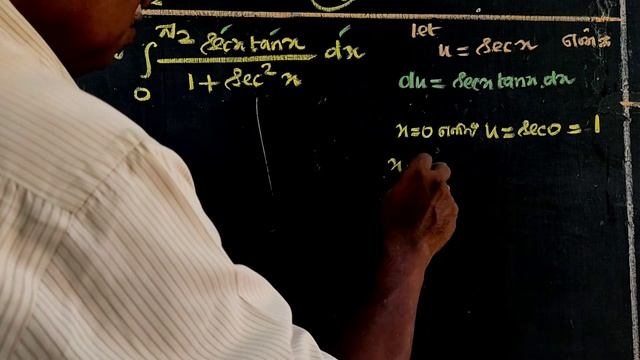 ∫₀^(π/2) secx tanx / (1 + sec² x) dx
let
u = secx என்க
du = secx tanx.dx
x=0 எனில் u = sec0 = 1
x